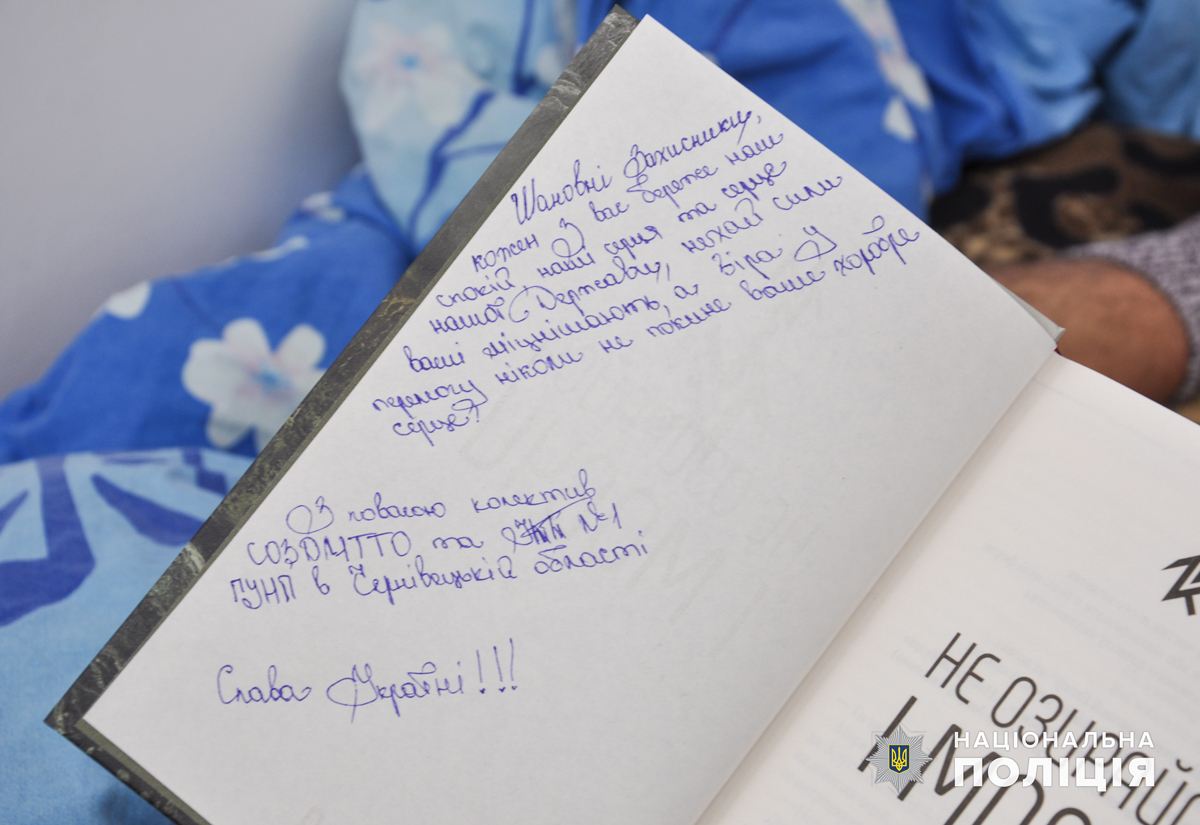 Шановні Захисники,
кожен з вас береже наш
спокій, наші серця та серце
нашої Держави, нехай сили
ваші міцнішають, а віра у
перемогу ніколи не покине ваше хоробре
серце!
З повагою колектив
СОЗДМТТО та №1
ГУНП в Чернівецькій області
Слава Україні!!!
НЕ ОЗИРАЙС
І МОВ
НАЦІОНАЛЬНА
ПОЛІЦІЯ